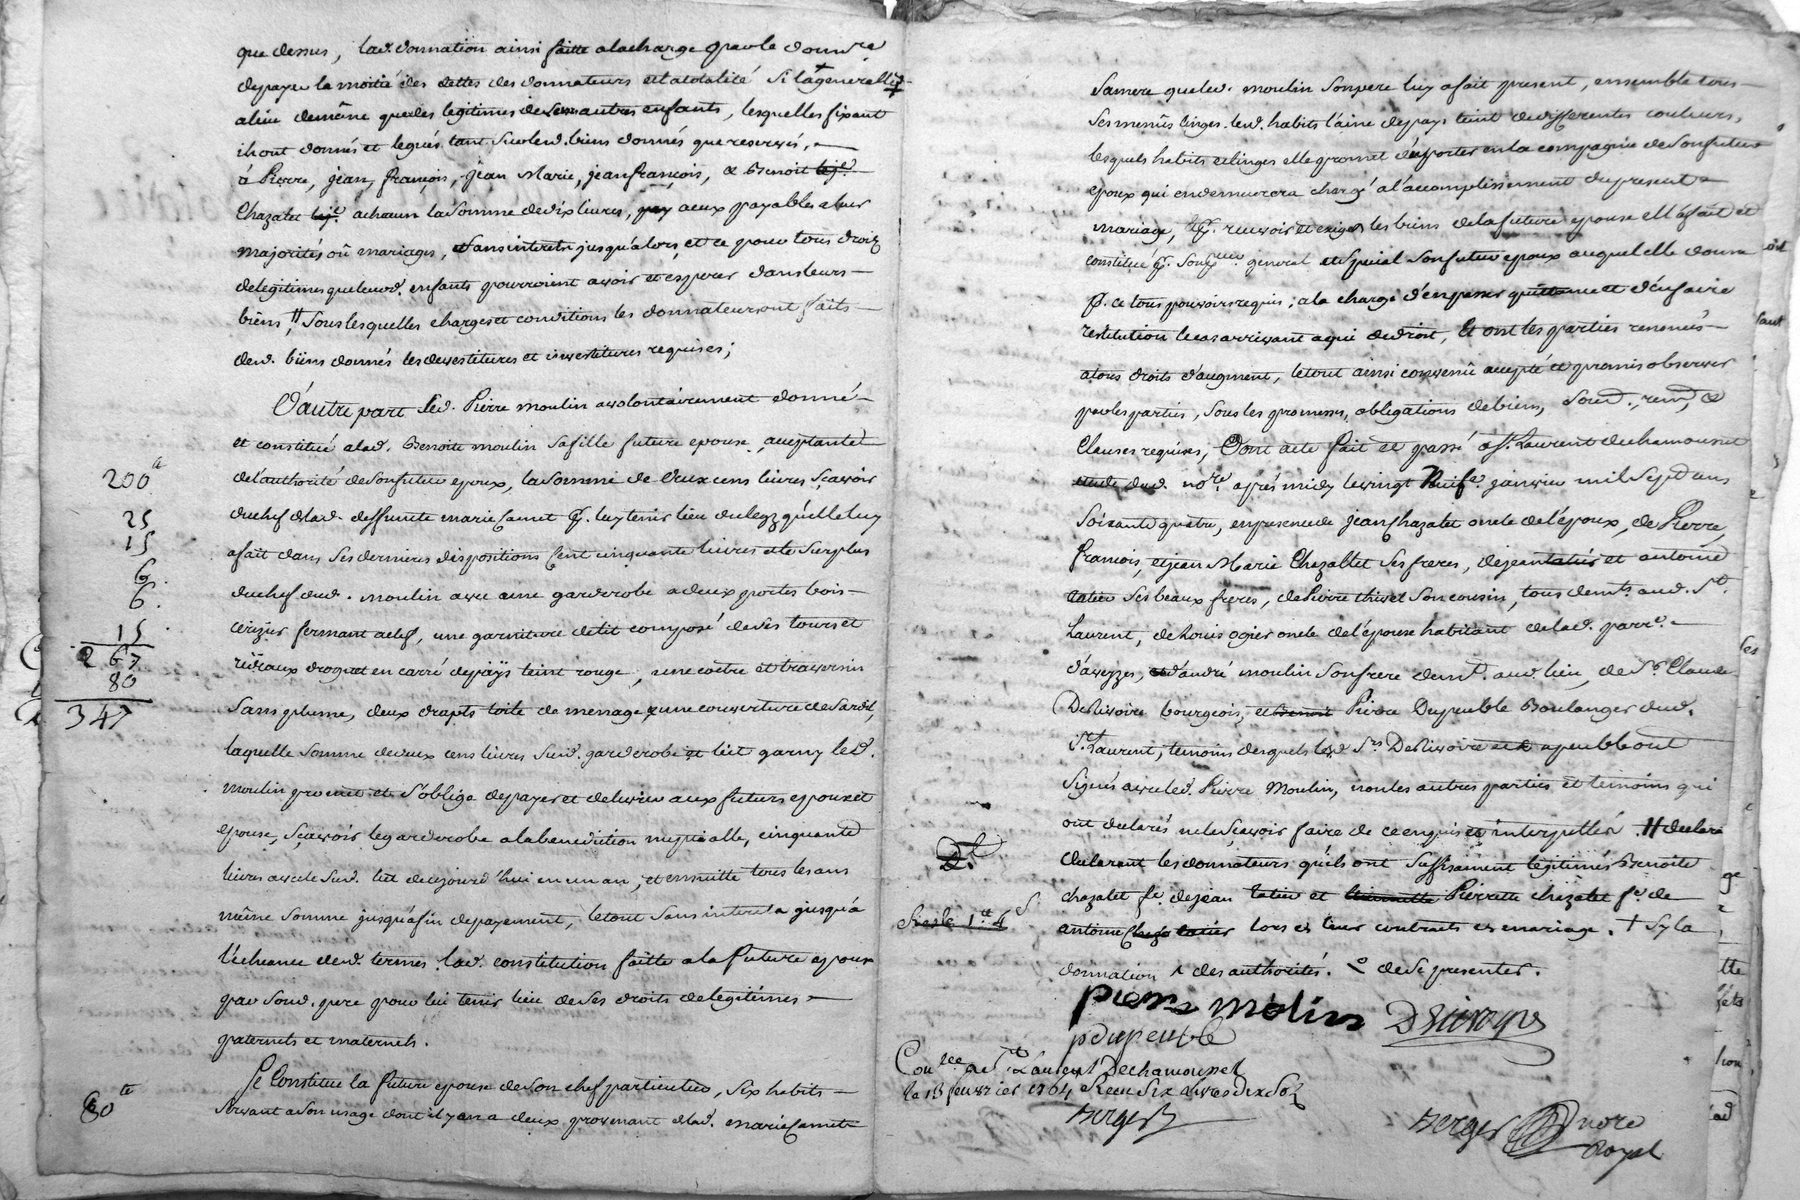 que dessus, lad. donnation ainsi faitte ala charge par le donn.re
de payer la moitié des dettes des donnateurs et la totalité si la generallité
aliéu de même que les legitimes de ses autres enfants, lesquelles fixant
ils ont donnés et legués tant sur lesd. biens donnés que reservés,
à Pierre, jean, françois, jean Marie, jean françois, & Benoit
Chazalet achacun la somme de dix livres, aeux payables a leur
majorités où mariages, sans interets jusqu'alors, et ce pour tous droits
de legitimes que leurd. enfants pourroient avoir et esperer dans leurs
biens, # sous lesquelles charges et conditions les donnateurs ont faits
desd. biens donnés les devestitures et investitures requises;
D'autre part led. Pierre moulin a volontairement donné
et constitué a lad. Benoite moulin sa fille future epouse, acceptante
de l'authorité de son futur epoux, la somme de deux cens livres sçavoir
du chef de lad. deffunte marie Camet p.r luy tenir lieu du legz qu'elle luy
a fait dans ses dernieres dispositions Cent cinquante livres et le surplus
du chef dud. moulin avec une garderobe a deux portes bois
cerizier fermant aclef, une garniture de lit composé de ses tours et
rideaux droguet en carré de païs teint rouge, une coëtre et traversin
sans plume, deux drapts toile de menage & une couverture de Sardit,
laquelle somme de deux cens livres susd. garderobe et liét garny led.
moulin promet et s'oblige de payer et delivrer aux futurs epoux et
epouse, sçavoir le garderobe ala benediction nuptialle, cinquante
livres avec le susd. lit de cejourd'hui en un an, et ensuitte tous les ans
même somme jusqu'a fin de payement, le tout sans interets jusqu'a
l'echeance desd. termes. lad. constitution faitte a la future epouse
par sond. pere pour lui tenir lieu de ses droits de legitimes
paternels et maternels.
Se Constitue la future epouse de son chef particulier, six habits
servant a son usage dont il y en a deux provenant de lad. marie Camet
200
25
15
6
6
15
267
80
347
80
sa mere que led. moulin son pere luy a fait present, ensemble tous
ses menûs linges. lesd. habits laine de pays teint de differentes couleurs,
lesquels habits et linges elle promet d'apporter en la compagnie de son futur
epoux qui en demeurera chargé a l'accomplissement du present
mariage, p.r recevoir et exiger les biens de la future epouse elle a fait et
constitue p.r son general et special son futur epoux auquel elle donne
p.r ce tous pouvoirs requis; a la charge d'en passer quittance et d'en faire
restitution le cas arrivant a qui de droit, Et ont les parties renoncés
a tous droits d'augment, le tout ainsi convenû accepté & promis observer
par les parties, sous les promesses, obligations de biens, soum., renon., &
Clauses requises, Dont acte fait et passé a S.t Laurent de chamousset
etude dud. no.re après midy le vingt neufe. janvier mil sept cens
soixante quatre, en presence de jean Chazalet oncle de l'epoux, de Pierre,
François, et jean Marie Chazallet ses freres, de jean tatier et antoine
tatier ses beaux freres, de Pierre thivet son cousin, tous dem.ts aud. S.t
Laurent, de Louis ogier oncle de l'epouse habitant de lad. parr.e
d'aveyzes, d'andré moulin son frere dem.t aud. lieu, de S.r Claude
DeRivoire bourgeois, et Pierre Dupeuble Boulanger dud.
S.t Laurent, temoins desquels lesd. S.rs DeRivoire et dupeuble ont
Signés avec led. Pierre Moulin, non les autres parties et temoins qui
ont declarés ne le sçavoir faire de ce enquis et interpellés. # declare
declarent les donnateurs qu'ils ont suffisament legitimés Benoite
chazalet f.e de jean tatier et Pierrette chazalet f.e de
antoine tatier lors de leur contrats de mariage. + Si la
donnation ^ des authorités. de se presenter.
pierre molin DeRivoyre
p dupeuble
Con.lee a S.t Laurent Dechamousset
le 13 fevrier 1764 Reçu Six Livres Dix Sols
Berger
Berger nore
Royal